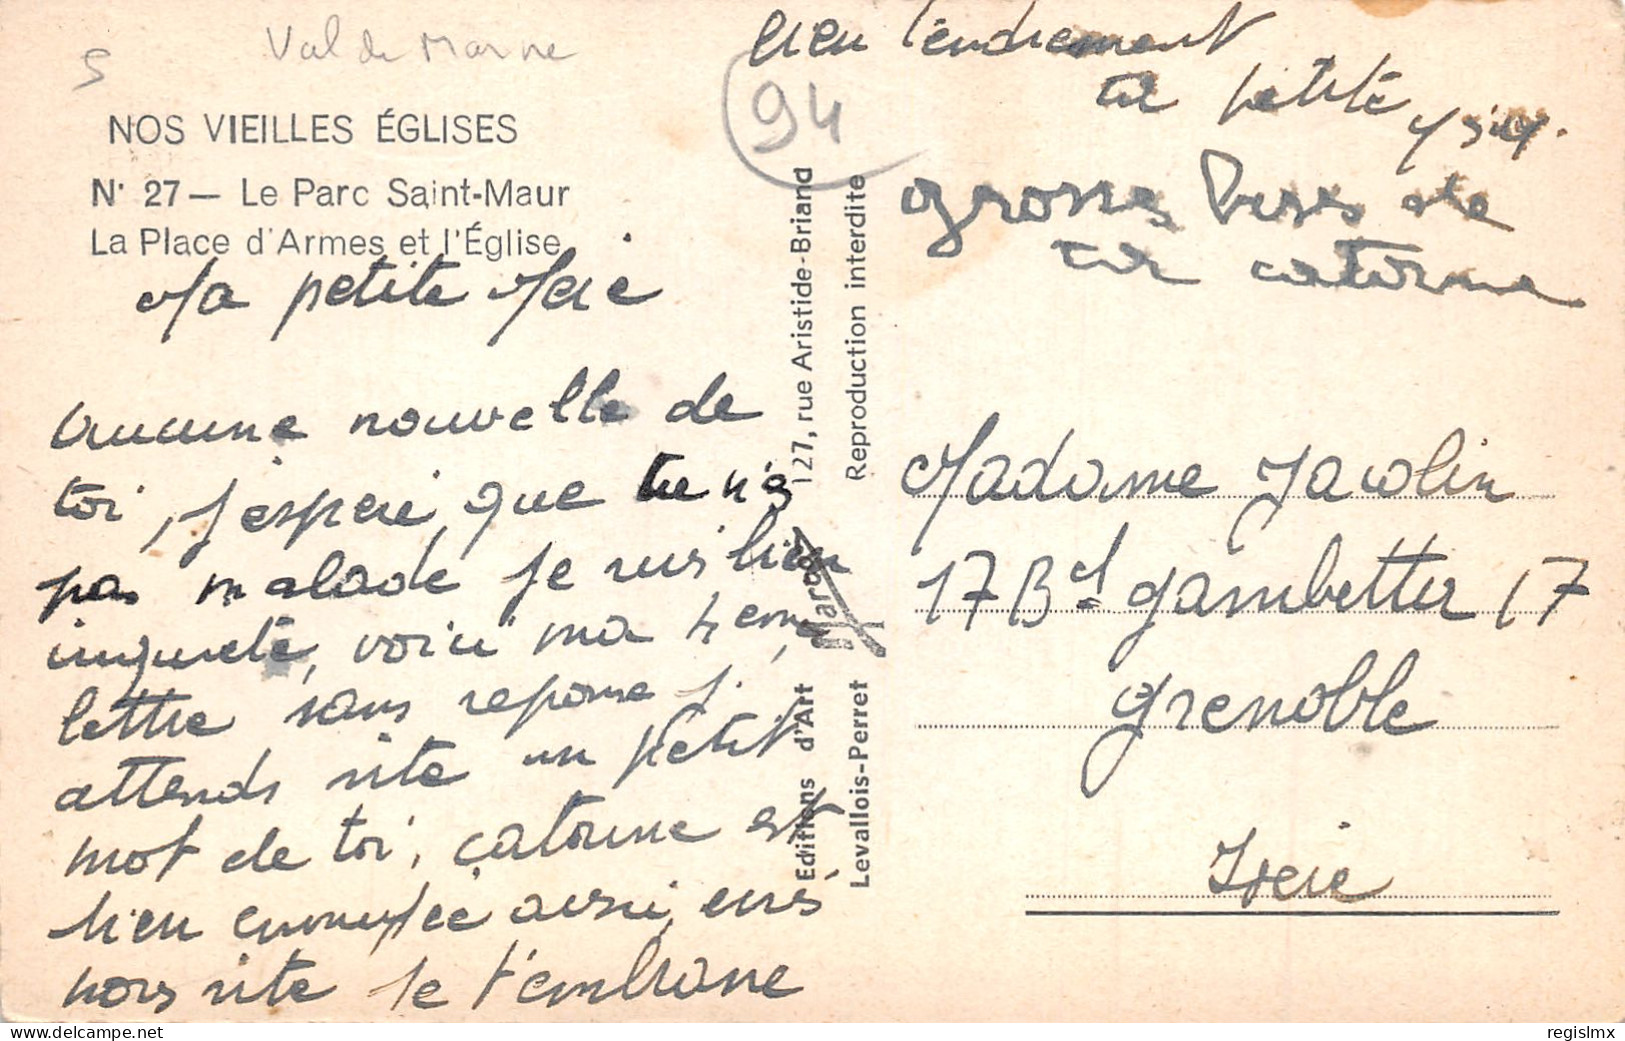 Val de Marne
5
NOS VIEILLES ÉGLISES
N° 27 — Le Parc Saint-Maur
La Place d'Armes et l'Église
Ma petite
aucune nouvelle de
toi, j'espere que tu n'es
pas malade je suis bien
inquiete, voici ma
lettre sans reponse j'
attends vite un petit
mot de toi, catorine est
bien ennuyée aussi, ecris
nous vite je t'embrasse
bien tendrement
ta petite
grosses bises de
ta catorine
94
127, rue Aristide-Briand
Reproduction interdite
Marco
Editions d'Art
Levallois-Perret
Madame Jacolin
17 Bd gambetta 17
grenoble
Isere
delcampe.net
regislmx